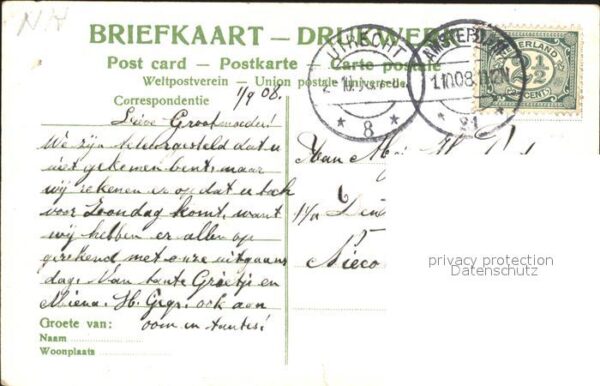 NH
BRIEFKAART — DRUKWERK
Post card — Postkarte — Carte postale
Weltpostverein — Union postale universelle
Correspondentie
1/9 08.
UTRECHT
8
AMSTERDAM
1.10.08. 11-12N
NEDERLAND
2½
CENT
Lieve Grootmoeder!
We zijn teleurgesteld dat u
niet gekomen bent, maar
wij rekenen er op dat u toch
voor Zondag komt, want
wij hebben er allen op
gerekend met onze uitgaans
dag. Van tante Greetje en
Miena. H. Grgr. ook aan
oom en tantes!
Groete van:
Naam
Woonplaats
Aan
Nieco
privacy protection
Datenschutz